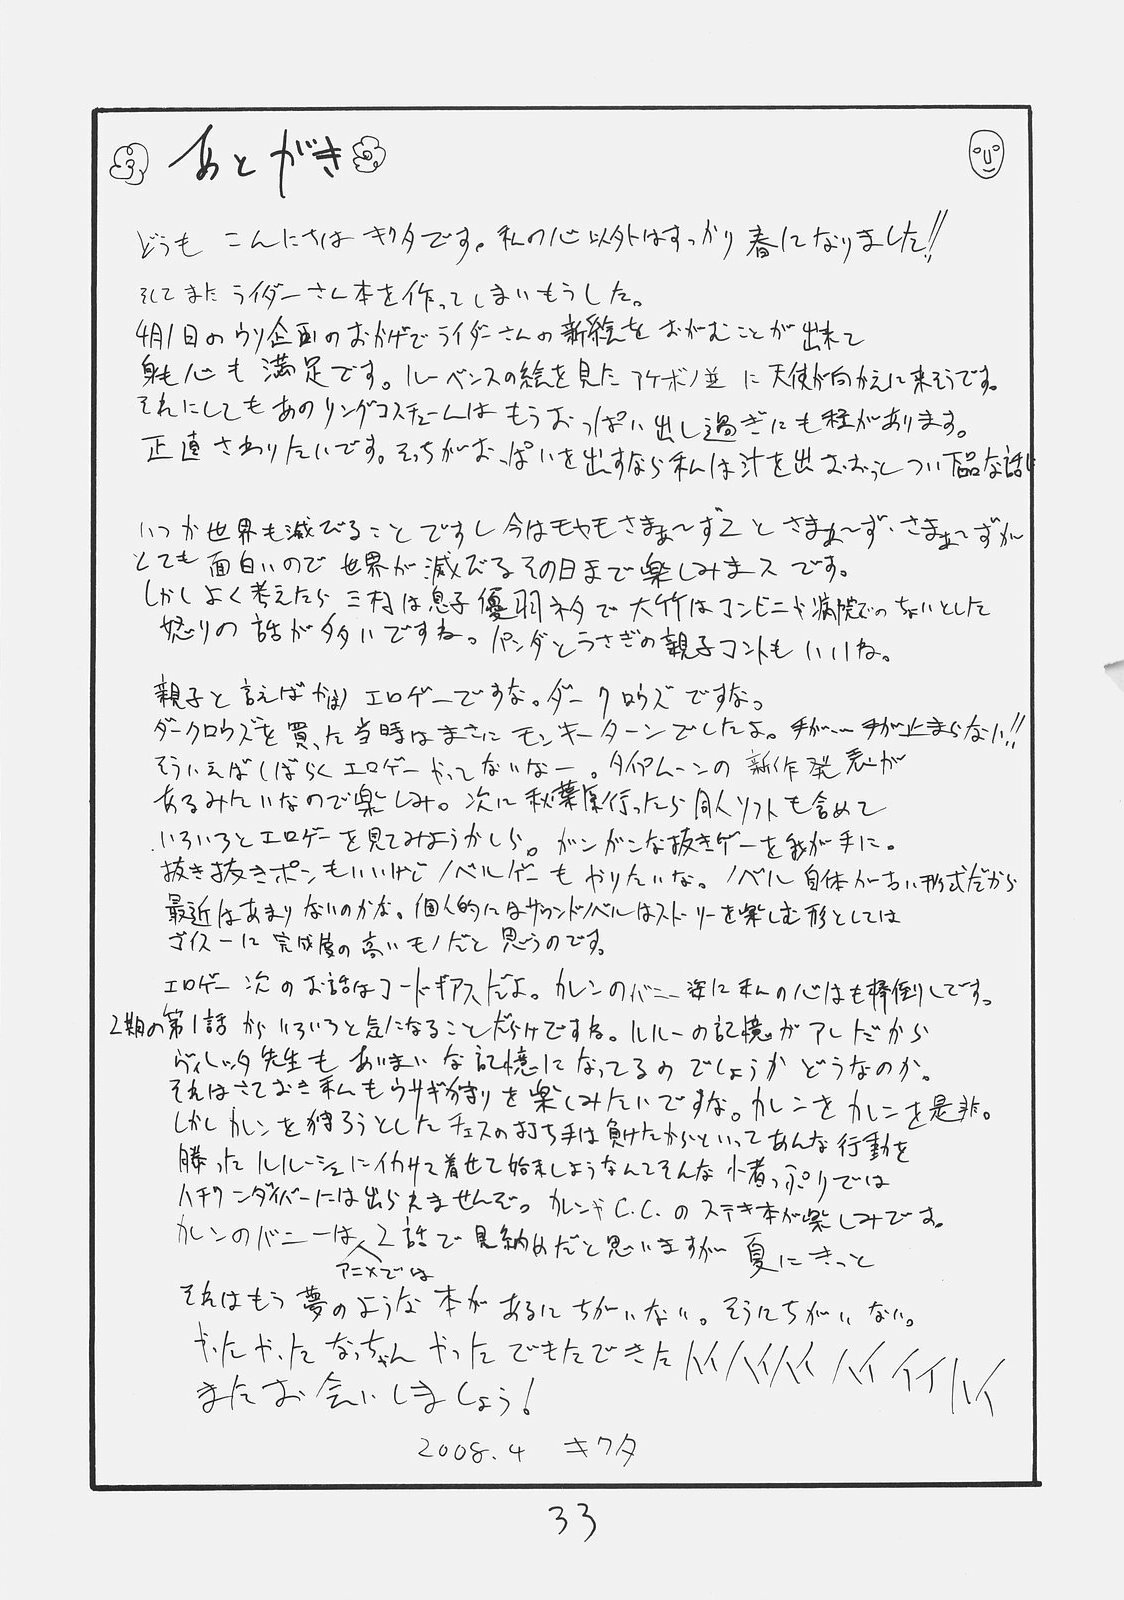 あとがき
どうも こんにちは キクタです。私の心以外はすっかり春になりました!!
そしてまたライダーさん本を作ってしまいもうした。
4月1日のウソ企画のおかげでライダーさんの新絵をおがむことが出来て
身も心も満足です。ルーベンスの絵を見たアケボノ並に天使が向かえに来そうです。
それにしてもあのリングコスチュームはもうおっぱい出し過ぎにも程があります。
正直さわりたいです。そっちがおっぱいを出すなら私は汁を出おおっとつい下品な話に
いつか世界も滅びることですし今はモヤモヤさまぁ〜ず2とさまぁ〜ず・さまぁ〜ずが
とても面白いので世界が滅びるその日まで楽しみまスです。
しかしよく考えたら三村は息子優羽ネタで大竹はコンビニや病院でのちょいとした
怒りの話が多いですね。パンダとうさぎの親子コントもいいね。
親子と言えばやはりエロゲーですな。ダークロウズですな。
ダークロウズを買った当時はまさにモンキーターンでしたよ。手が…手が止まらない!!
そういえばしばらくエロゲーやってないなー。タイアムーンの新作発表が
あるみたいなので楽しみ。次に秋葉原行ったら同人ソフトも含めて
いろいろとエロゲーを見てみようかしら。ガンガンな抜きゲーを我が手に。
抜き抜きポンもいいけどノベルゲーもやりたいな。ノベル自体が古い形式だから
最近はあまりないのかな。個人的にはサウンドノベルはストーリーを楽しむ形としては
ゴイスーに完成度の高いモノだと思うのです。
エロゲー次のお話はコードギアスだよ。カレンのバニー姿に私の心はも棒倒しです。
2期の第1話からいろいろと気になることだらけですね。ルルーの記憶がアレだから
ヴィレッタ先生もあいまいな記憶になってるのでしょうかどうなのか。
それはさておき私もウサギ狩りを楽しみたいですな。カレンをカレンを是非。
しかしカレンを狩ろうとしたチェスの打ち手は負けたからといってあんな行動を
勝ったルルーシュにイカサマ着せて始末しようなんてそんな小者っぷりでは
ハチワンダイバーには出られませんぞ。カレンやC.C.のステキ本が楽しみです。
カレンのバニーはアニメでは2話で見納めだと思いますが夏にきっと
それはもう夢のような本があるにちがいない。そうにちがいない。
やったやったなっちゃんやったでもたできたハイハイハイハイイイハイ
またお会いしましょう!
2008.4 キクタ
33